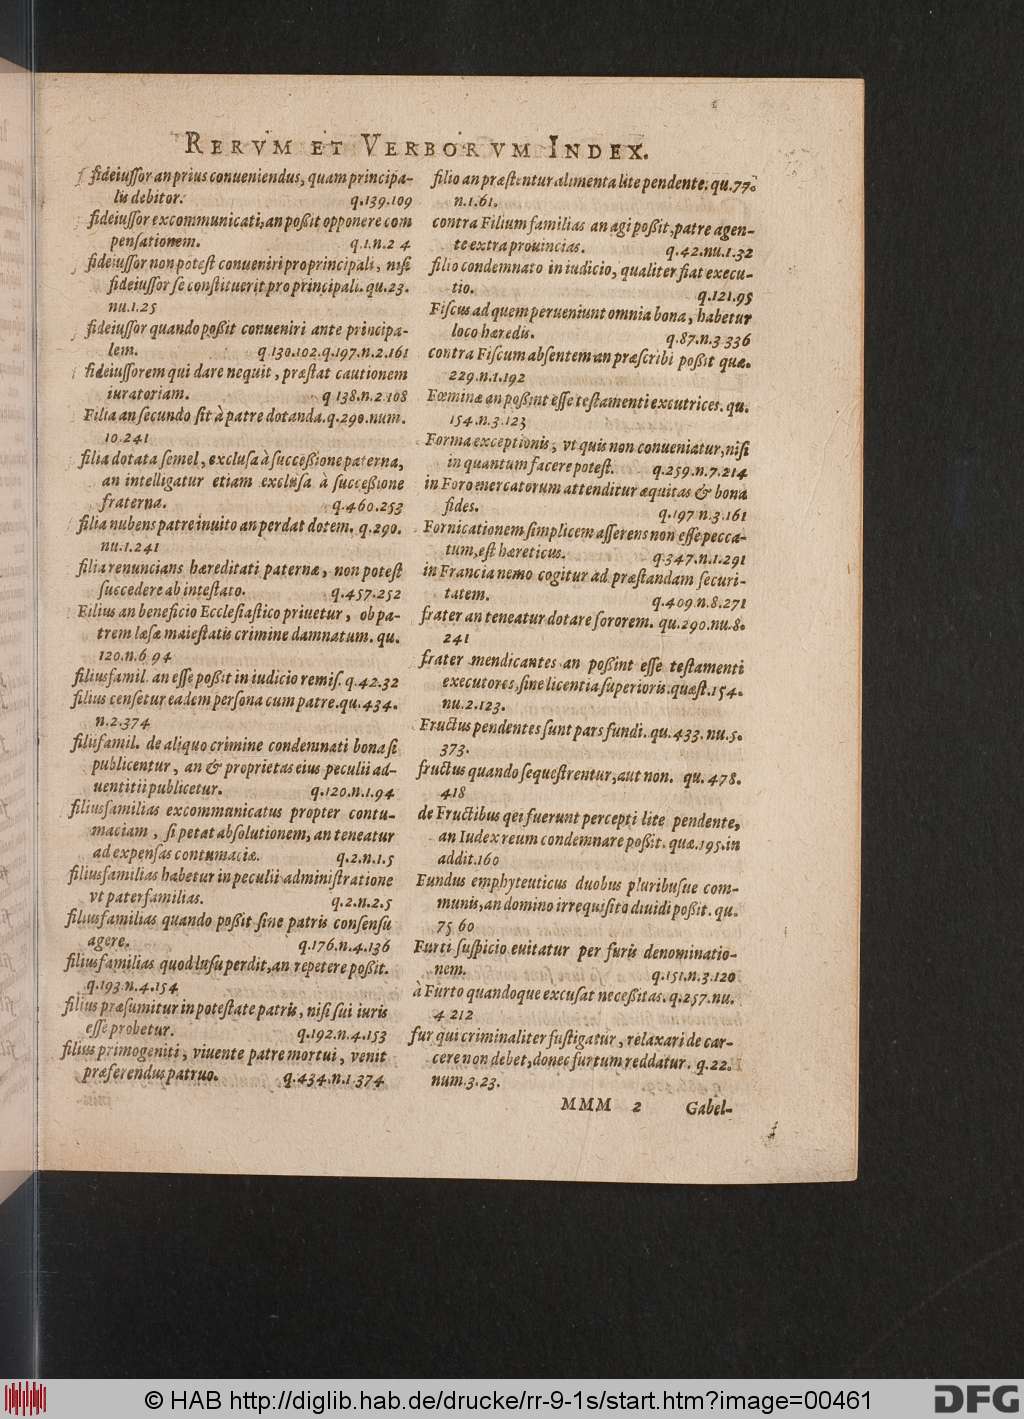 RERVM ET VERBORVM INDEX.
fideiussor an prius conueniendus, quam principa-
lis debitor. q.139.109
fideiussor excommunicati, an poßit opponere com
pensationem. q.1.n.2 4
fideiussor non potest conueniri pro principali, nisi
fideiussor se constituerit pro principali. qu.23.
nu.1.25
fideiussor quando poßit conueniri ante principa-
lem. q.130.102.q.197.n.2.161
fideiussorem qui dare nequit, præstat cautionem
iuratoriam. q 138.n.2.108
Filia an secundo sit à patre dotanda.q.290.num.
10.241
filia dotata semel, exclusa à succeßione paterna,
an intelligatur etiam exclusa à succeßione
fraterna. q.460.253
filia nubens patre inuito an perdat dotem. q.290.
nu.1.241
filia renuncians hæreditati paternæ, non potest
succedere ab intestato. q.457.252
Filius an beneficio Ecclesiastico priuetur, ob pa-
trem læsæ maiestatis crimine damnatum. qu.
120.n.6 94
filiusfamil. an esse poßit in iudicio remis. q.42.32
filius censetur eadem persona cum patre.qu.434.
n.2.374
filiifamil. de aliquo crimine condemnati bona si
publicentur, an & proprietas eius peculii ad-
uentitii publicetur. q.120.n.1.94
filiusfamilias excommunicatus propter contu-
maciam, si petat absolutionem, an teneatur
ad expensas contumaciæ. q.2.n.1.5
filiusfamilias habetur in peculii administratione
vt paterfamilias. q.2.n.2.5
filiusfamilias quando poßit sine patris consensu
agere. q.176.n.4.136
filiusfamilias quod lusu perdit, an repetere poßit.
q.193.n.4.154
filius præsumitur in potestate patris, nisi sui iuris
esse probetur. q.192.n.4.153
filius primogeniti, viuente patre mortui, venit
præferendus patruo. q.434.n.1.374
filio an præstentur alimenta lite pendente. qu.77.
n.1.61.
contra Filium familias an agi poßit, patre agen-
te extra prouincias. q.42.nu.1.32
filio condemnato in iudicio, qualiter fiat execu-
tio. q.121.95
Fiscus ad quem perueniunt omnia bona, habetur
loco hæredis. q.87.n.3 336
contra Fiscum absentem an præscribi poßit quæ.
229.n.1.192
Fœminæ an poßint esse testamenti excutrices. qu.
154.n.3.123
Forma exceptionis, vt quis non conueniatur, nisi
in quantum facere potest. q.259.n.7.214
in Foro mercatorum attenditur æquitas & bona
fides. q.197 n.3.161
Fornicationem simplicem asserens non esse pecca-
tum, est hæreticus. q.347.n.1.291
in Francia nemo cogitur ad præstandam securi-
tatem. q.409 n.8.271
frater an teneatur dotare sororem. qu.290.nu.8.
241
frater mendicantes an poßint esse testamenti
executores, sine licentia superioris.quæst.154.
nu.2.123.
Fructus pendentes sunt pars fundi. qu.433. nu.5.
373.
fructus quando sequestrentur, aut non. qu. 478.
418
de Fructibus qei fuerunt percepti lite pendente,
an Iudex reum condemnare poßit. quæ.195.in
addit.160
Fundus emphyteuticus duobus pluribusue com-
munis, an domino irrequisito diuidi poßit. qu.
75 60
Furti suspicio euitatur per furis denominatio-
nem. q.151.n.3.120
à Furto quandoque excusat neceßitas. q.257.nu.
4 212
fur qui criminaliter fustigatur, relaxari de car-
cere non debet, donec furtum reddatur. q.22.
num.3.23.
MMM 2 Gabel-
© HAB http://diglib.hab.de/drucke/rr-9-1s/start.htm?image=00461
DFG